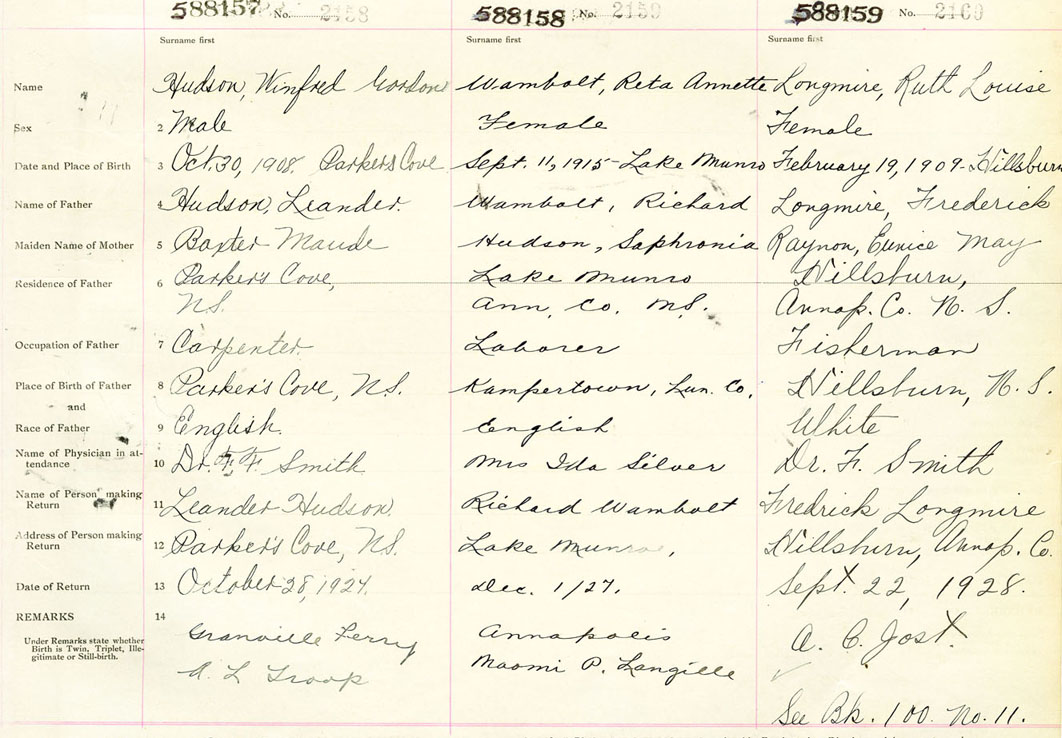 588157 No. 2158
588158 No. 2159
588159 No. 2160
Surname first
Surname first
Surname first
Name Hudson, Winfred Gordon Wambolt, Reta Annette Longmire, Ruth Louise
Sex 2 Male Female Female
Date and Place of Birth 3 Oct. 30, 1908. Parkers Cove Sept. 11, 1915 - Lake Munro February 19, 1909 - Hillsburn
Name of Father 4 Hudson, Leander. Wambolt, Richard Longmire, Frederick
Maiden Name of Mother 5 Baxter Maude Hudson, Saphronia Raynon, Eunice May
Residence of Father 6 Parker's Cove, Lake Munro Hillsburn,
N.S. Ann. Co. N.S. Annap. Co. N. S.
Occupation of Father 7 Carpenter. Laborer Fisherman
Place of Birth of Father 8 Parker's Cove, N.S. Kampertown, Lun. Co. Hillsburn, N. S.
and
Race of Father 9 English. English White
Name of Physician in at-
tendance 10 Dr. F. Smith Mrs Ida Silver Dr. F. Smith
Name of Person making
Return 11 Leander Hudson. Richard Wambolt Fredrick Longmire
Address of Person making
Return 12 Parker's Cove, N.S. Lake Munro, Hillsburn, Annap. Co.
Date of Return 13 October 28, 1927. Dec. 1/27. Sept. 22, 1928.
REMARKS 14
Under Remarks state whether
Birth is Twin, Triplet, Ille-
gitimate or Still-birth.
Granville Ferry Annapolis A. C. Jost
A. L. Troop Naomi P. Langille
See Bk. 100. No. 11.